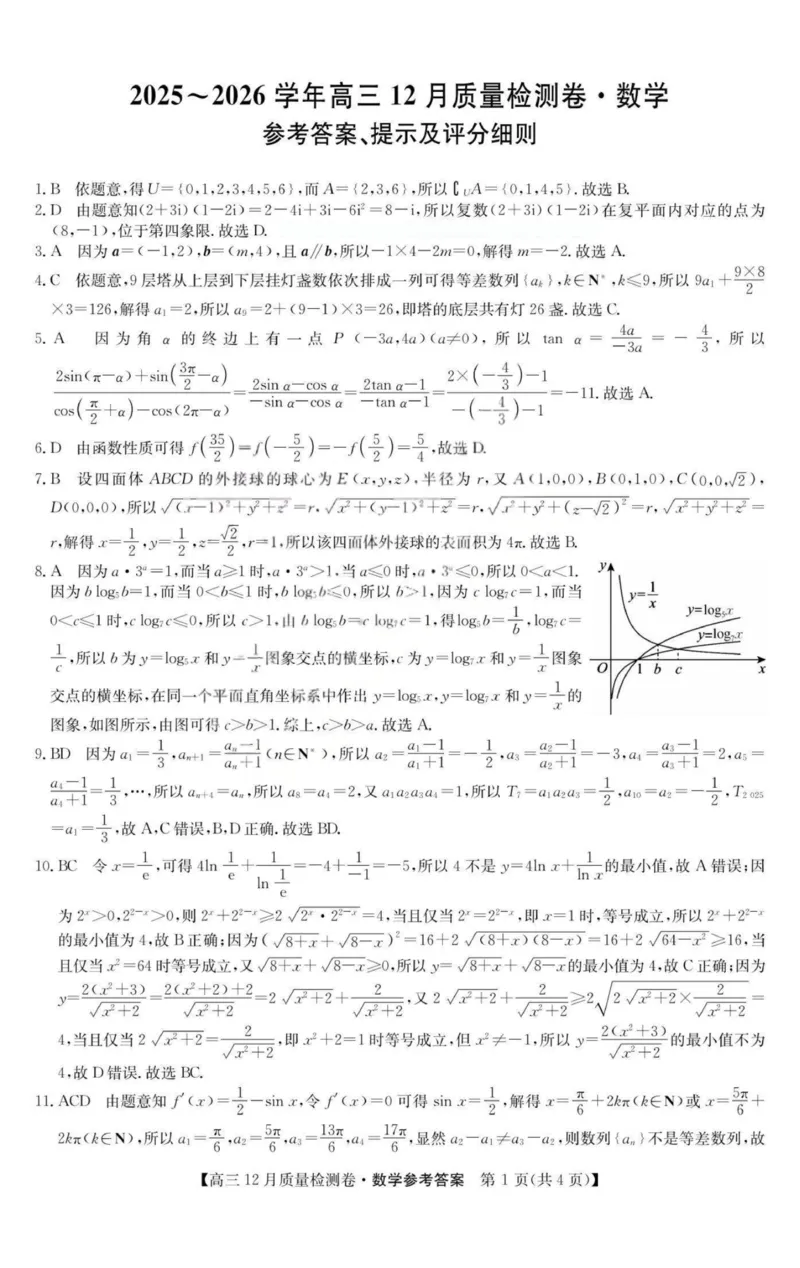 2025～2026 学年高三 12 月质量检测卷·数学
参考答案、提示及评分细则
1. B 依题意,得U={0,1,2,3,4,5,6},而A={2,3,6},所以∁UA={0,1,4,5}.故选B.
2. D 由题意知(2+3i)(1-2i)=2-4i+3i-6i²=8-i,所以复数(2+3i)(1-2i)在复平面内对应的点为
(8,-1),位于第四象限.故选D.
3. A 因为a=(-1,2),b=(m,4),且a∥b,所以-1×4-2m=0,解得m=-2.故选A.
4. C 依题意,9层塔从上层到下层挂灯盏数依次排成一列可得等差数列{aₖ},k∈N*,k≤9,所以9a₁+9×8/2
×3=126,解得a₁=2,所以a₉=2+(9-1)×3=26,即塔的底层共有灯26盏.故选C.
5. A 因为角α的终边上有一点P(-3a,4a)(a≠0),所以tan α=4a/-3a=-4/3,所以
(2sin(π-α)+sin(3π/2-α))/(cos(π/2+α)-cos(2π-α))=(2sin α-cos α)/(-sin α-cos α)=(2tan α-1)/(-tan α-1)=(2×(-4/3)-1)/(-(-4/3)-1)=-11.故选A.
6. D 由函数性质可得f(35/2)=f(-5/2)=-f(5/2)=5/4,故选D.
7. B 设四面体ABCD的外接球的球心为E(x,y,z),半径为r,又A(1,0,0),B(0,1,0),C(0,0,√2),
D(0,0,0),所以√((x-1)²+y²+z²)=r,√(x²+(y-1)²+z²)=r,√(x²+y²+(z-√2)²)=r,√(x²+y²+z²)=
r,解得x=1/2,y=1/2,z=√2/2,r=1,所以该四面体外接球的表面积为4π.故选B.
8. A 因为a·3ᵃ=1,而当a≥1时,a·3ᵃ>1,当a≤0时,a·3ᵃ≤0,所以0<a<1.
因为b log₅b=1,而当0<b≤1时,b log₅b≤0,所以b>1,因为c log₇c=1,而当
0<c≤1时,c log₇c≤0,所以c>1,由b log₅b=c log₇c=1,得log₅b=1/b,log₇c=
1/c,所以b为y=log₅x和y=1/x图象交点的横坐标,c为y=log₇x和y=1/x图象
交点的横坐标,在同一个平面直角坐标系中作出y=log₅x,y=log₇x和y=1/x的
图象,如图所示,由图可得c>b>1.综上,c>b>a.故选A.
y
y=1/x
y=log₅x
y=log₇x
O 1 b c x
9. BD 因为a₁=1/3,aₙ₊₁=(aₙ-1)/(aₙ+1)(n∈N*),所以a₂=(a₁-1)/(a₁+1)=-1/2,a₃=(a₂-1)/(a₂+1)=-3,a₄=(a₃-1)/(a₃+1)=2,a₅=
(a₄-1)/(a₄+1)=1/3,…,所以aₙ₊₄=aₙ,所以a₈=a₄=2,又a₁a₂a₃a₄=1,所以T₇=a₁a₂a₃=1/2,a₁₀=a₂=-1/2,T₂₀₂₅
=a₁=1/3,故A,C错误,B,D正确.故选BD.
10. BC 令x=1/e,可得4ln 1/e+1/(ln 1/e)=-4+1/-1=-5,所以4不是y=4ln x+1/ln x的最小值,故A错误;因
为2ˣ>0,2²⁻ˣ>0,则2ˣ+2²⁻ˣ≥2√(2ˣ·2²⁻ˣ)=4,当且仅当2ˣ=2²⁻ˣ,即x=1时,等号成立,所以2ˣ+2²⁻ˣ
的最小值为4,故B正确;因为(√(8+x)+√(8-x))²=16+2√((8+x)(8-x))=16+2√(64-x²)≥16,当
且仅当x²=64时等号成立,又√(8+x)+√(8-x)≥0,所以y=√(8+x)+√(8-x)的最小值为4,故C正确;因为
y=2(x²+3)/√(x²+2)=(2(x²+2)+2)/√(x²+2)=2√(x²+2)+2/√(x²+2),又2√(x²+2)+2/√(x²+2)≥2√(2√(x²+2)×2/√(x²+2))=
4,当且仅当2√(x²+2)=2/√(x²+2),即x²+2=1时等号成立,但x²≠-1,所以y=2(x²+3)/√(x²+2)的最小值不为
4,故D错误.故选BC.
11. ACD 由题意知f′(x)=1/2-sin x,令f′(x)=0可得sin x=1/2,解得x=π/6+2kπ(k∈N)或x=5π/6+
2kπ(k∈N),所以a₁=π/6,a₂=5π/6,a₃=13π/6,a₄=17π/6,显然a₂-a₁≠a₃-a₂,则数列{aₙ}不是等差数列,故
【高三12月质量检测卷·数学参考答案 第1页(共4页)】